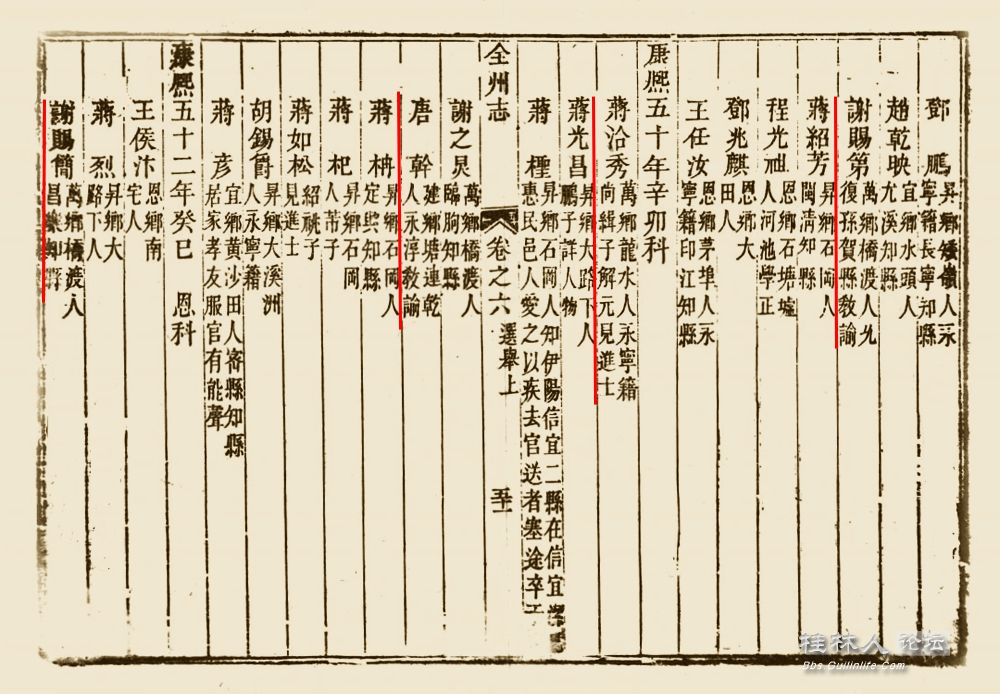 鄧鵬 昇鄉矮嶺人永寧籍長寧知縣
趙乾映 宜鄉水頭人尤溪知縣
謝賜第 萬鄉橋渡人九復孫賀縣敎諭
蔣紹芳 昇鄉石岡人閩清知縣
程光祖 恩鄉石塘墟人河池學正
鄧兆麒 恩鄉大田人
王任汝 恩鄉茅埠人永寧籍印江知縣
康熙五十年辛卯科
蔣洽秀 萬鄉龍水人永寧籍向緯子解元見進士
蔣光昌 昇鄉大路下人鵬子詳人物
蔣檉 昇鄉石岡人知伊陽信宜二縣在信宜惠民邑人愛之以疾去官送者塞途卒于
全州志 卷之六 選舉上
謝之炅 萬鄉橋渡人臨朐知縣
唐幹 建鄉塘連乾人永淳敎諭
蔣枏 昇鄉石岡人定興知縣
蔣杞 昇鄉石岡人芾子
蔣如松 紹子見進士
胡錫爵 昇鄉大溪洲人永寧籍
蔣彥 宜鄉黃沙田人容縣知縣居家孝友服官有能聲
康熙五十二年癸巳 恩科
王侯汴 恩鄉南宅人
蔣烈 昇鄉大路下人
謝賜簡 萬鄉橋渡人昌樂知縣
桂林人 论坛
Bbs.Guilinlife.Com